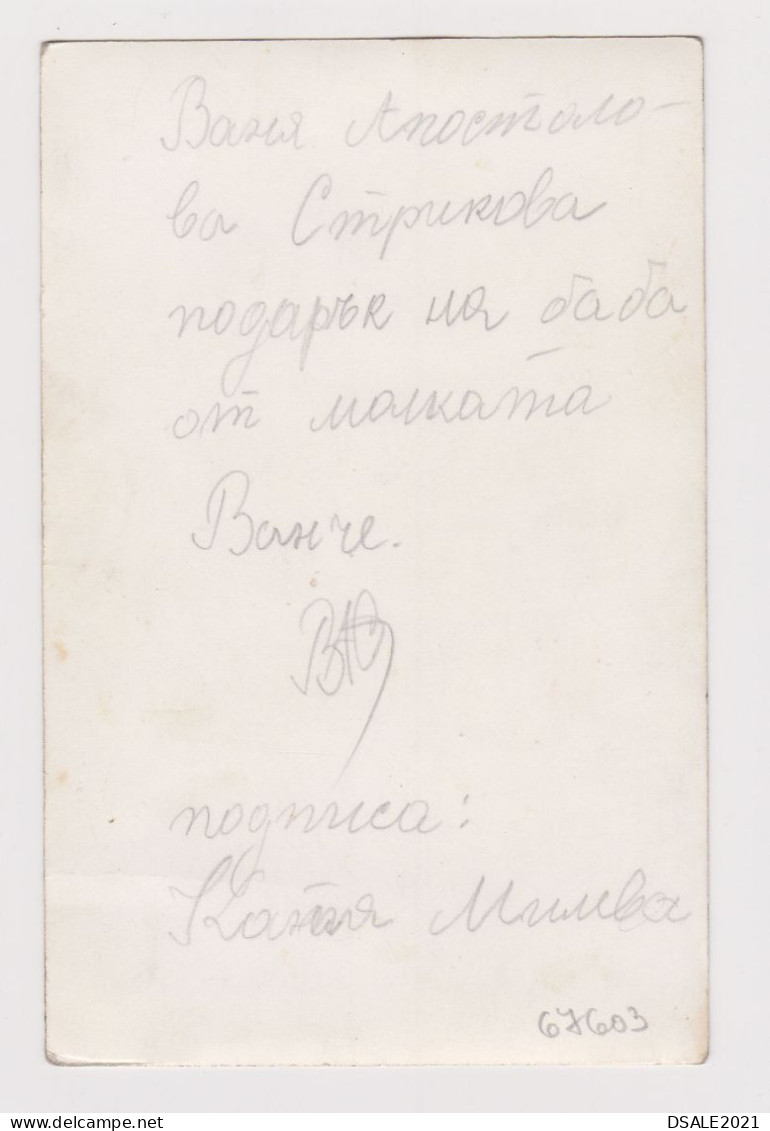 Ваня Апостоло-
ва Стрикова
подарък на баба
от малката
Ванче.
подписа:
Катя Милева
67603
DSALE2021